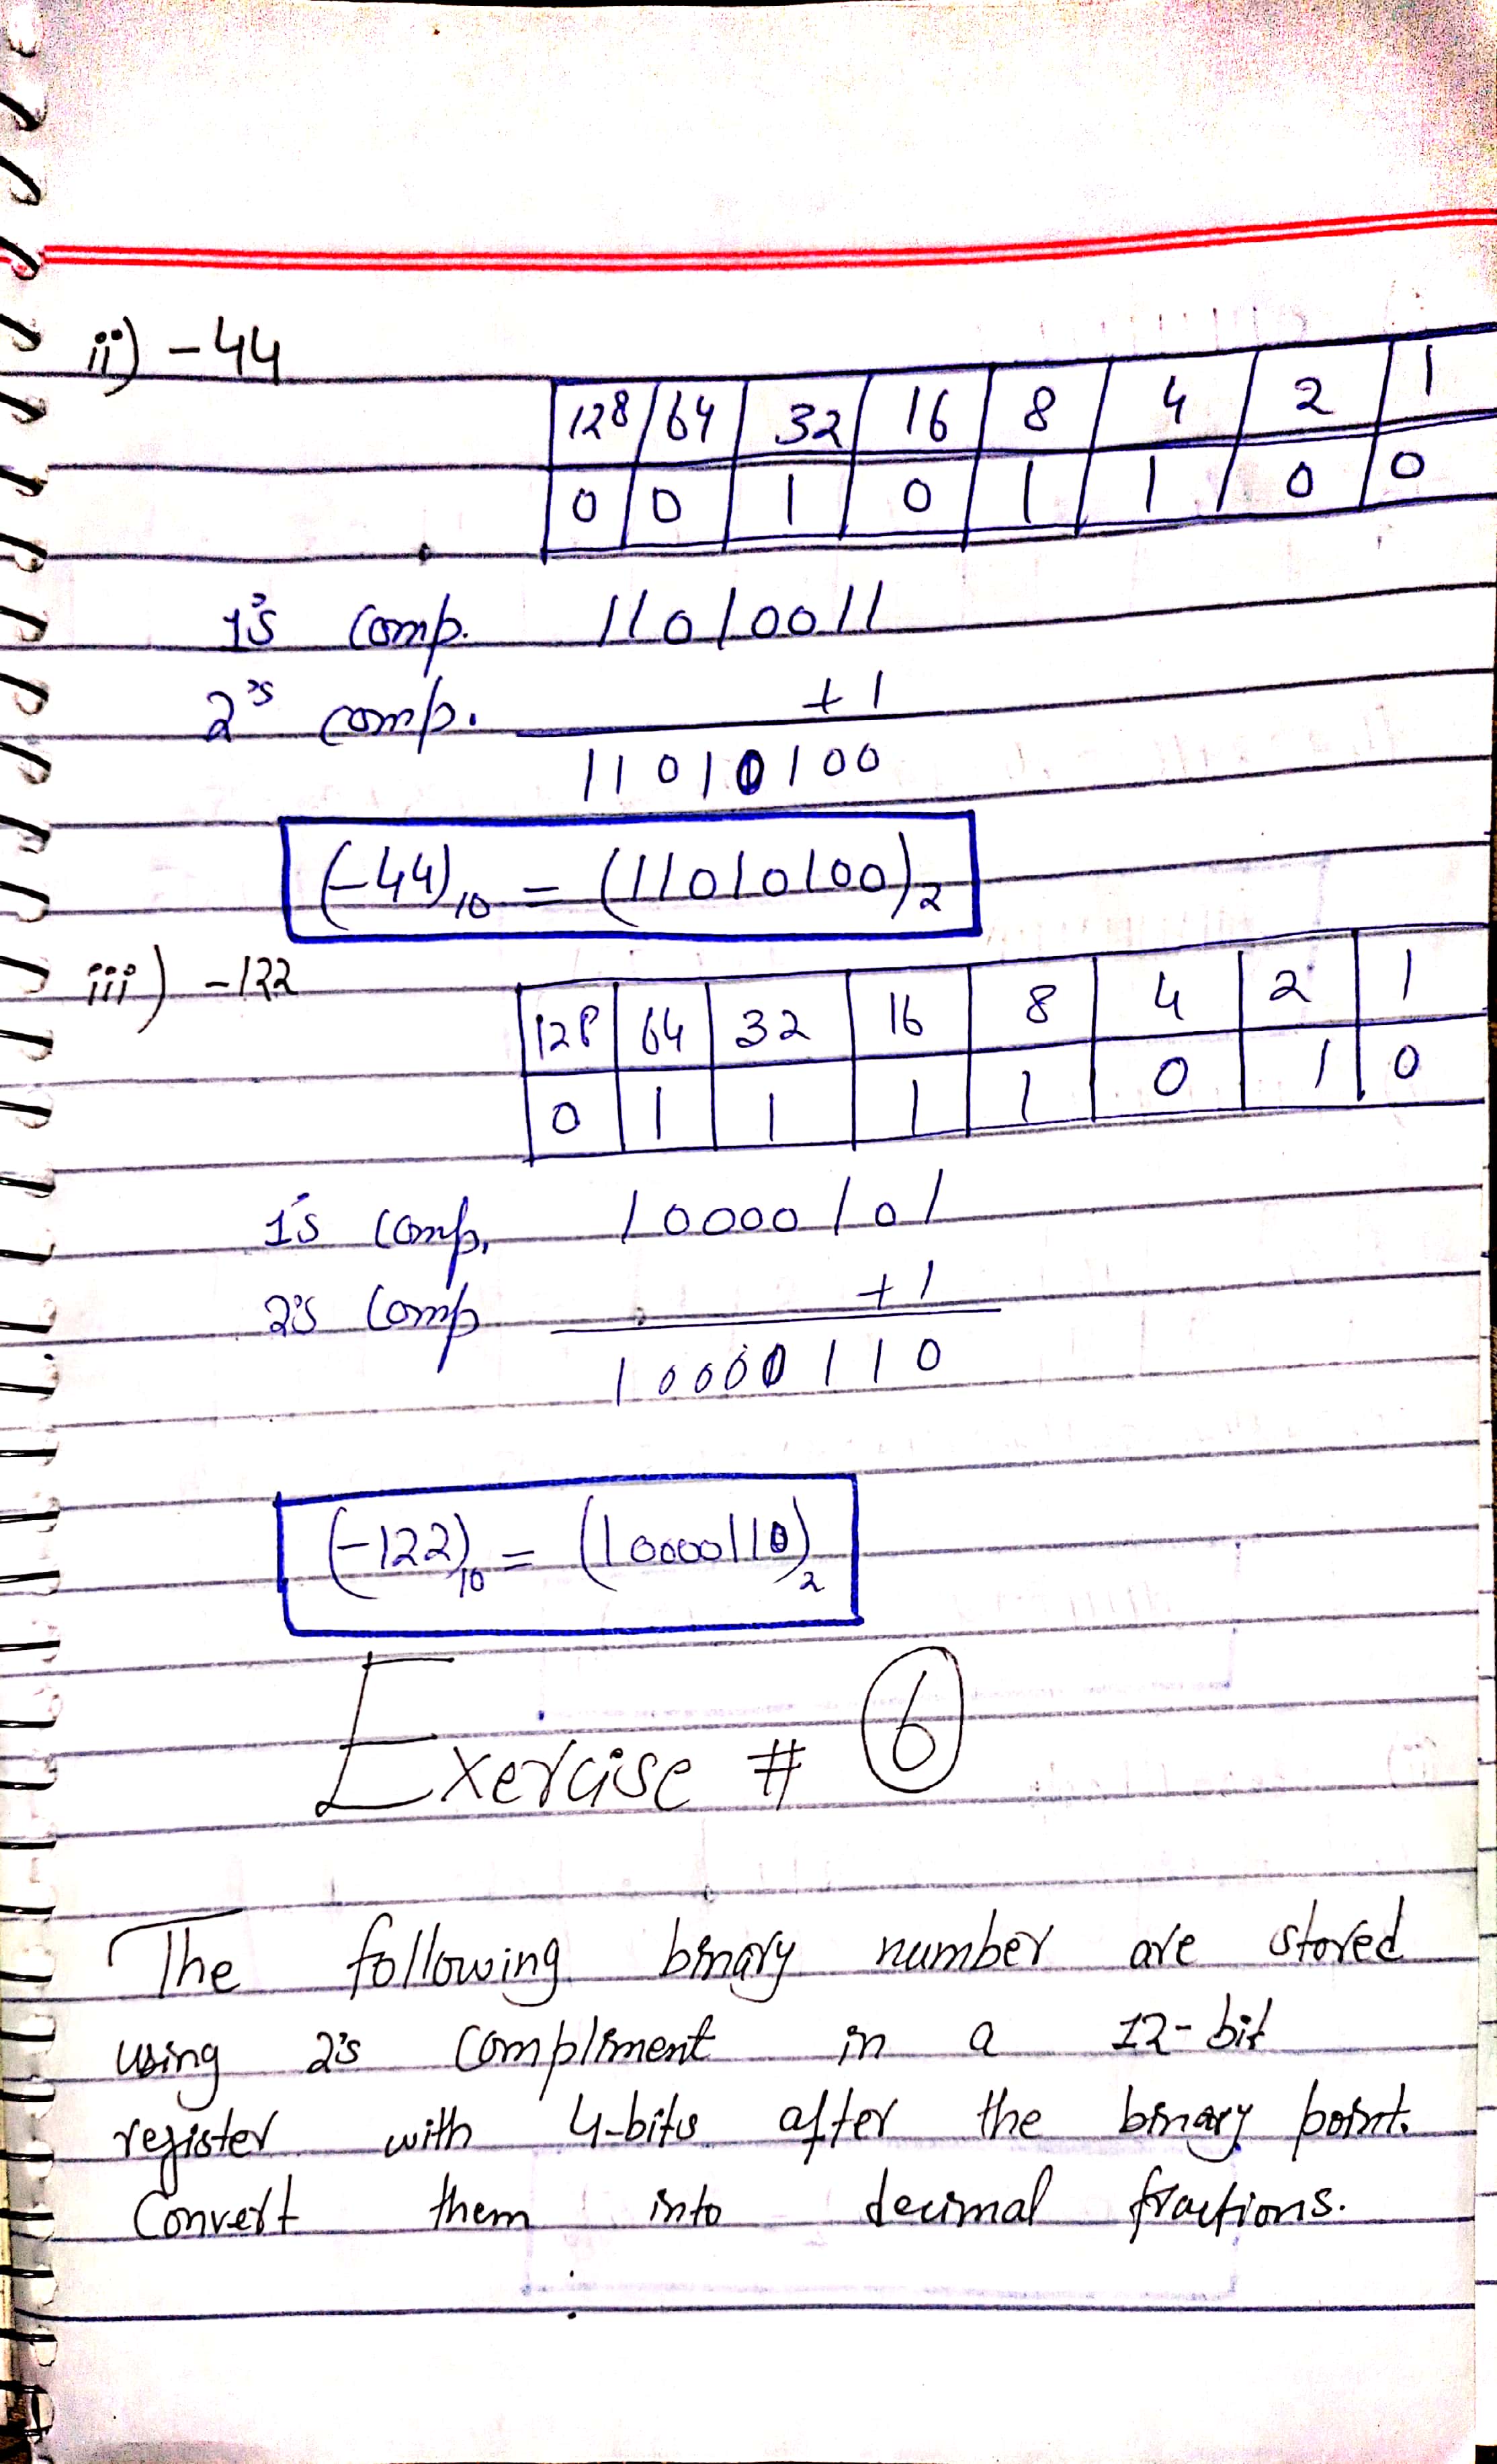 ii) -44
128 64 32 16 8 4 2 1
0 0 1 0 1 1 0 0
1's comp. 11010011
2's comp. +1
11010100
(-44)₁₀ = (11010100)₂
iii) -122
128 64 32 16 8 4 2 1
0 1 1 1 1 0 1 0
1's comp. 10000101
2's comp +1
10000110
(-122)₁₀ = (10000110)₂
Exercise # 6
The following binary number are stored
using 2's compliment in a 12-bit
register with 4-bits after the binary point.
Convert them into decimal fractions.